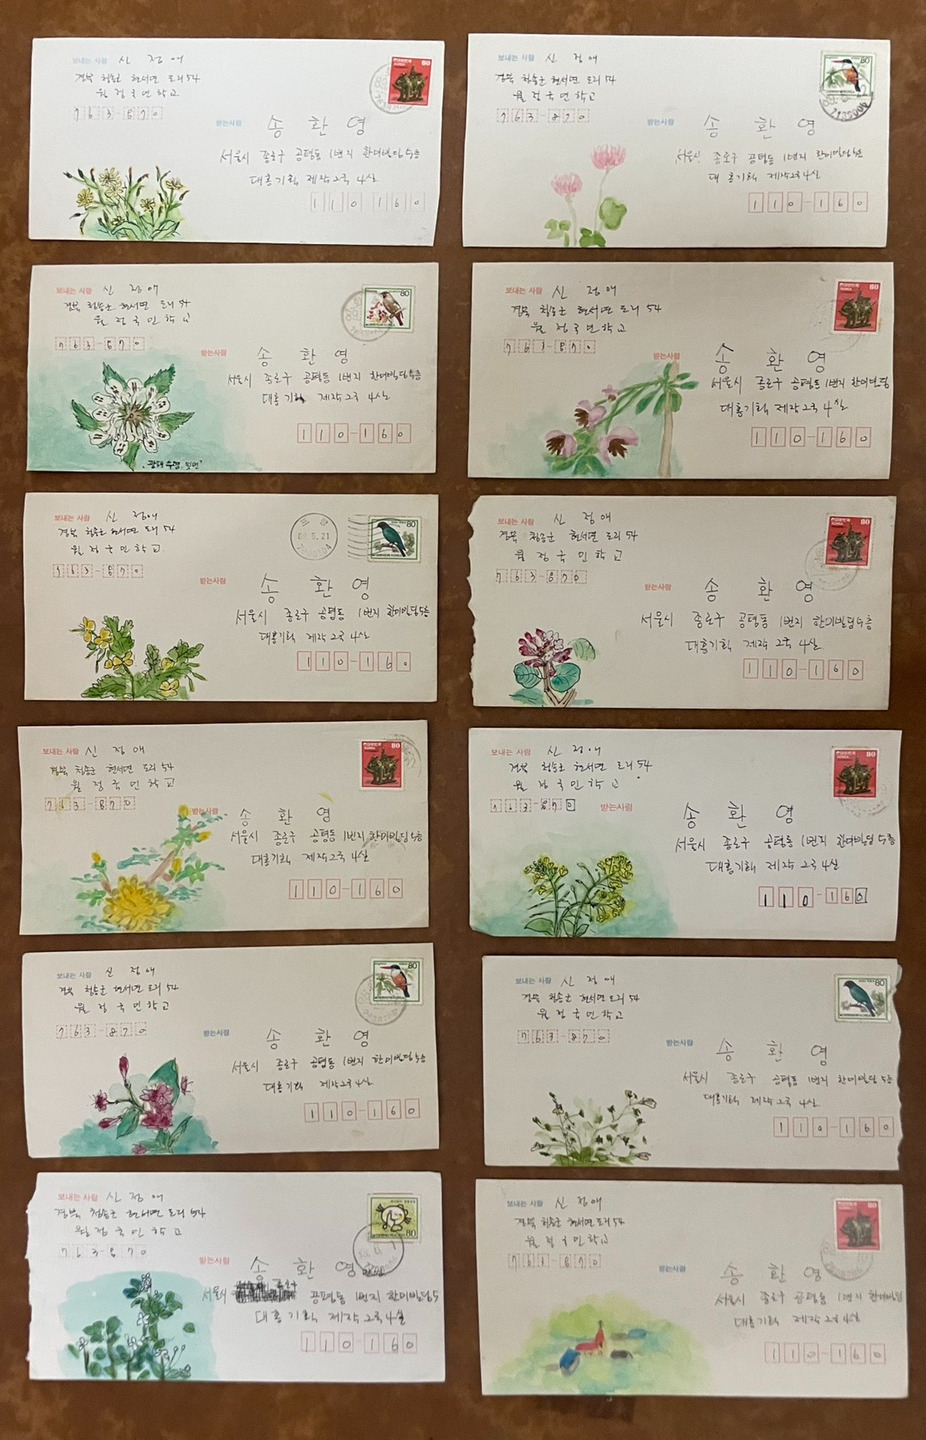 보내는 사람 신 정 애
경북 청송군 현서면 도리 54
월 정 국 민 학 교
763-870
받는사람 송 환 영
서울시 종로구 공평동 1번지 한미빌딩 5층
대홍기획 제작2국 4실
110 160
80
보내는 사람 신 정 애
경북 청송군 현서면 도리 54
월 정 국 민 학 교
763-870
받는사람 송 환 영
서울시 종로구 공평동 1번지 한미빌딩 5층
대 홍기획 제작2국 4실
110-160
80
보내는 사람 신 정 애
경북 청송군 현서면 도리 54
월 정 국 민 학 교
763-870
받는사람 송 환 영
서울시 종로구 공평동 1번지 한미빌딩 5층
대홍기획 제작2국 4실
110-160
80
보내는 사람 신 정 애
경북 청송군 현서면 도리 54
월 정 국 민 학 교
763-870
받는사람 송 환 영
서울시 종로구 공평동 1번지 한미빌딩
대홍기획 제작2국 4실
110-160
80
보내는 사람 신 정애
경북 청송군 현서면 도리 54
월 정 국 민 학 교
763-870
받는사람 송 환 영
서울시 종로구 공평동 1번지 한미빌딩 5층
대홍기획 제작2국 4실
110-160
80
보내는 사람 신 정 애
경북 청송군 현서면 도리 54
월 정 국 민 학 교
763-870
받는사람 송 환 영
서울시 종로구 공평동 1번지 한미빌딩 5층
대홍기획 제작 2국 4실
110-160
80
보내는 사람 신 정 애
경북 청송군 현서면 도리 54
월 정 국 민 학 교
763-870
받는사람 송 환 영
서울시 종로구 공평동 1번지 한미빌딩 5층
대홍기획 제작2국 4실
110-160
80
보내는 사람 신 정 애
경북 청송군 현서면 도리 54
월 정 국 민 학 교
763-870
받는사람 송 환 영
서울시 종로구 공평동 1번지 한미빌딩 5층
대홍기획 제작2국 4실
110-160
80
보내는 사람 신 정 애
경북 청송군 현서면 도리 54
월 정 국 민 학 교
763-870
받는사람 송 환 영
서울시 종로구 공평동 1번지 한미빌딩 5층
대홍기획 제작2국 4실
110-160
80
보내는 사람 신 정 애
경북 청송군 현서면 도리 54
월 정 국 민 학 교
763-870
받는사람 송 환 영
서울시 종로구 공평동 1번지 한미빌딩 5층
대홍기획 제작2국 4실
110-160
80
보내는 사람 신 정 애
경북 청송군 현서면 도리 54
월 정 국 민 학 교
763-870
받는사람 송 환 영
서울시 공평동 1번지 한미빌딩 5
대홍 기획 제작2국 4실
110-160
80
보내는 사람 신 정 애
경북 청송군 현서면 도리 54
월 정 국 민 학 교
763-870
받는사람 송 환 영
서울시 종로구 공평동 1번지 한미빌딩
대홍기획 제작2국 4실
110-160
80